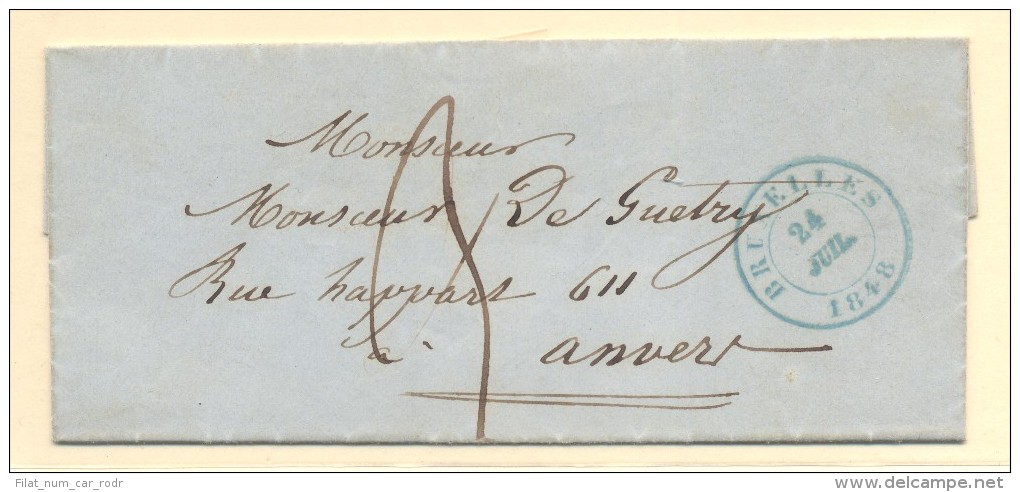 Monsieur
Monsieur De Guetry
Rue happart 611
a
anvers
BRUXELLES
24
JUIL.
1848
Filat_num_car_rodr